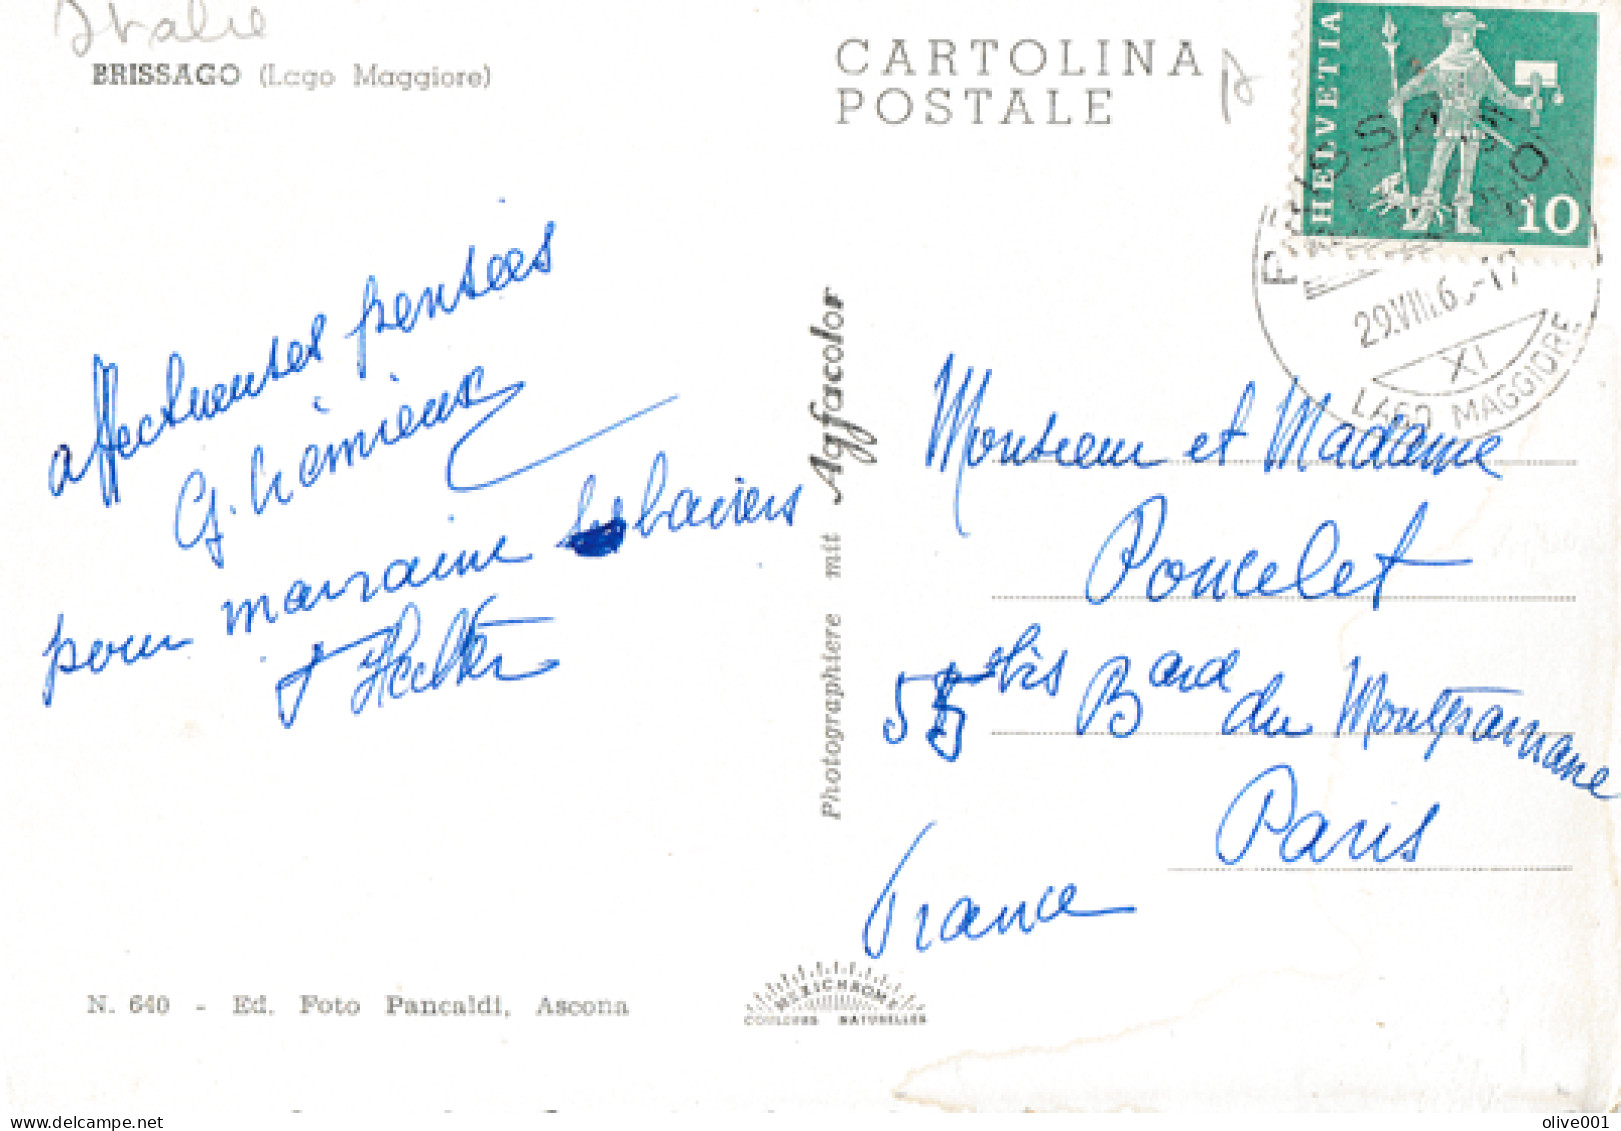 Italie
BRISSAGO (Lago Maggiore)
CARTOLINA
POSTALE
HELVETIA
10
BRISSAGO
29.VIII.6 -17
XI
LAGO MAGGIORE
affectueuses pensées
G.
pour marraine baisers
Photographiere mit Agfacolor
Monsieur et Madame
Poncelet
55 bis Bard du Montparnasse
Paris
France
N. 640 - Ed. Foto Pancaldi, Ascona
MEXICHROME
COULEURS NATURELLES
delcampe.net
olive001